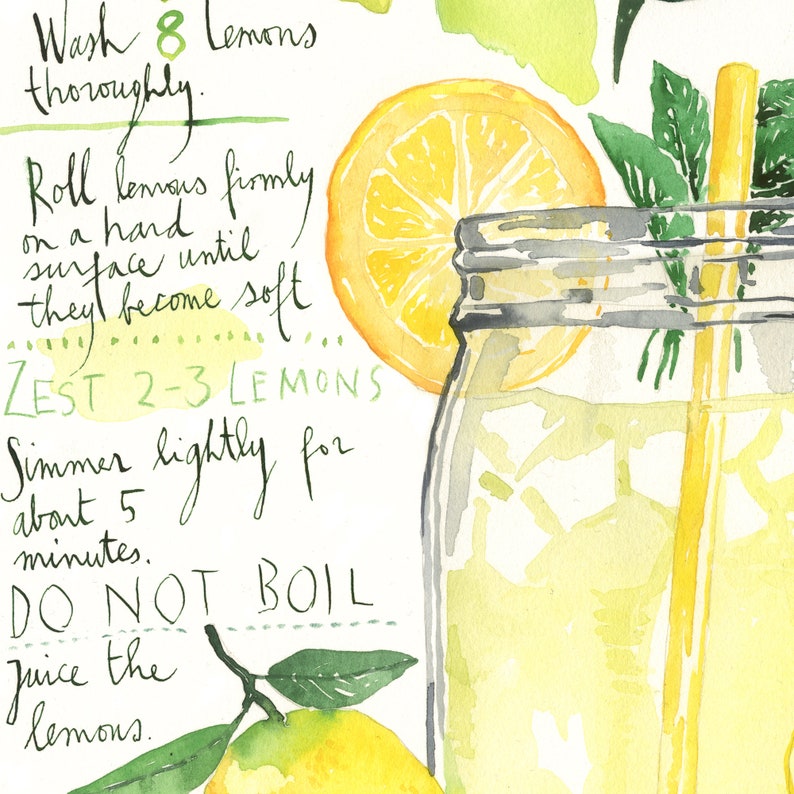 Wash 8 lemons
thoroughly.
Roll lemons firmly
on a hard
surface until
they become soft
ZEST 2-3 LEMONS
Simmer lightly for
about 5
minutes.
DO NOT BOIL
Juice the
lemons.